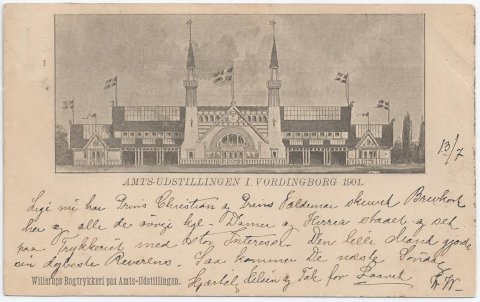 AMTS-UDSTILLINGEN I. VORDINGBORG 1901.
13/7
Lige nu har Prins Christian og Prins Valdemar skrevet Brevkort
her og alle de øvrige kgl. Damer og Herrer staaet og set
paa Trykkeriet med stor Interesse. Den hele Stand gjorde
sin dybeste Reverens. Saa kommer de næste Søndag
Hjertelig Hilsen og Tak for Laanet
Willerups Bogtrykkeri paa Amts-Udstillingen.